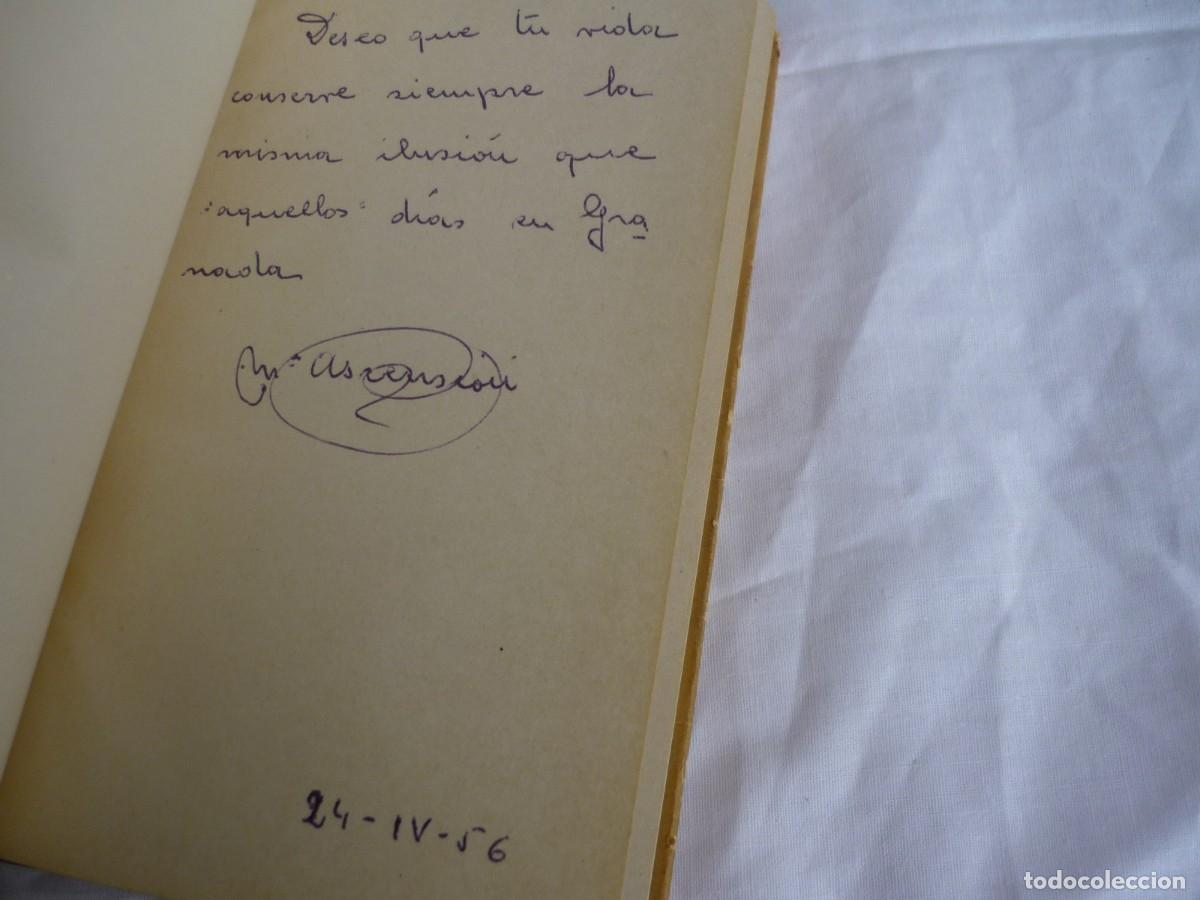 Deseo que tu vida
conserve siempre la
misma ilusión que
"aquellos" días en Gra
nada.
Mª Ascensión
24-IV-56
todocoleccion